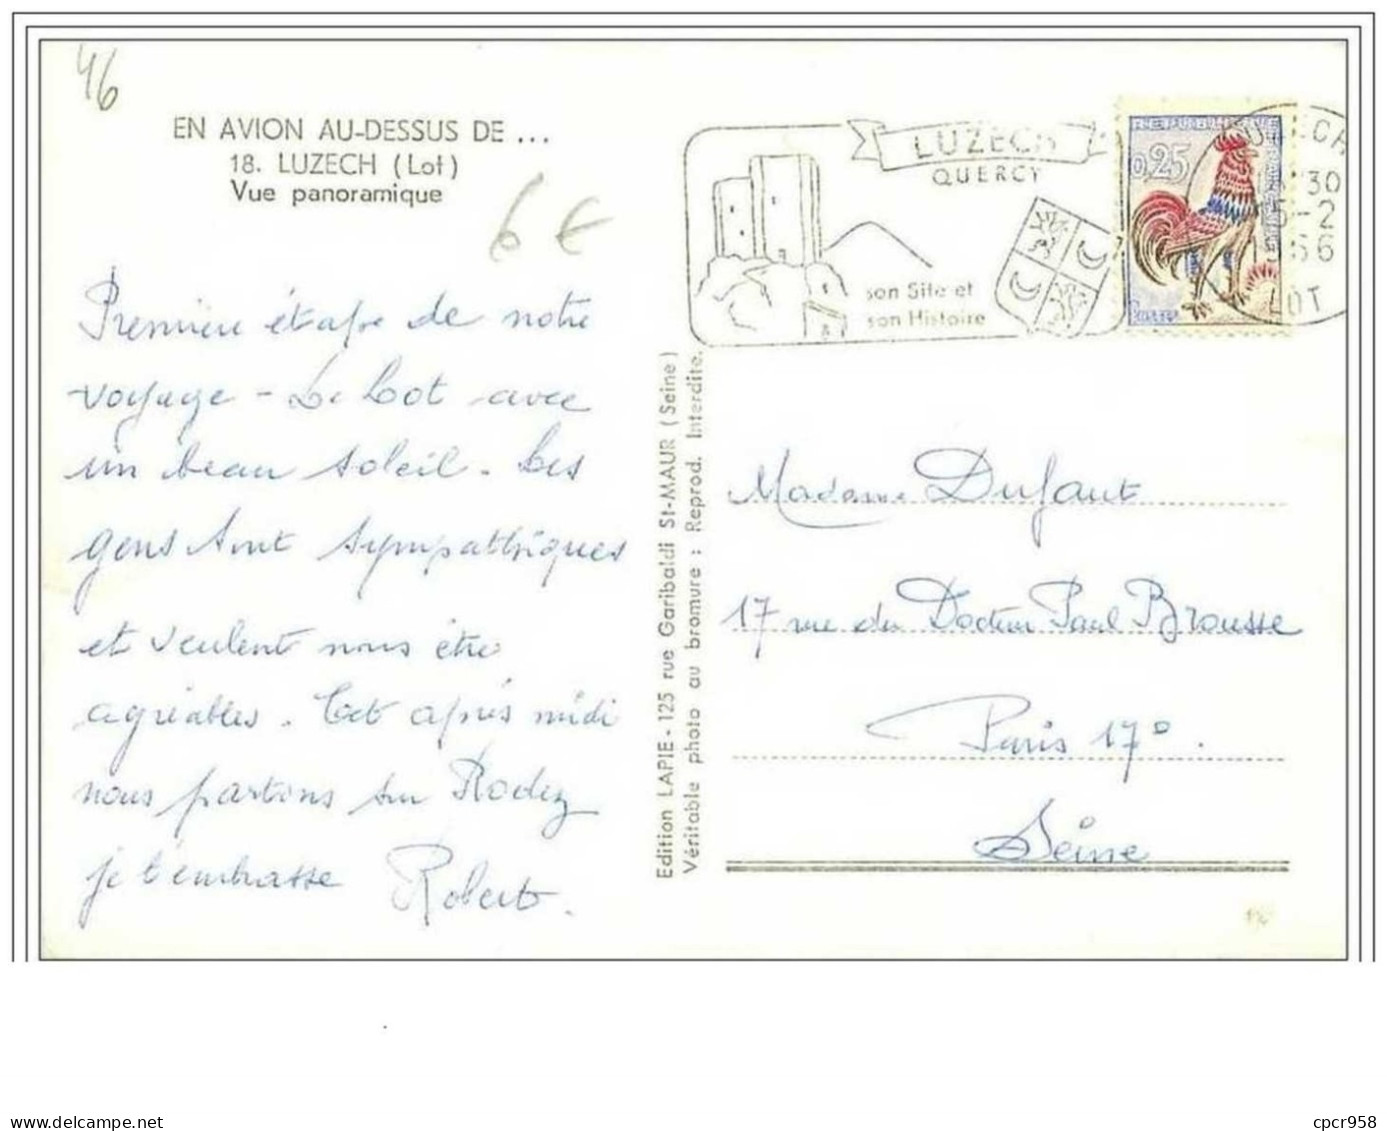 46
EN AVION AU-DESSUS DE ...
18. LUZECH (Lot)
Vue panoramique
6 €
Première étape de notre
voyage - Le Lot avec
un beau soleil. Les
gens sont sympathiques
et veulent nous être
agréables. Cet après midi
nous partons sur Rodez
je t'embrasse Robert.
Edition LAPIE - 125 rue Garibaldi St-MAUR (Seine)
Véritable photo au bromure : Reprod. Interdite.
LUZECH
QUERCY
son Site et
son Histoire
REPUBLIQUE FRANÇAISE
0,25
LUZECH
30
15-2
1966
LOT
Madame Dufaut
17 rue du Docteur Paul Brousse
Paris 17°.
Seine
cpcr958